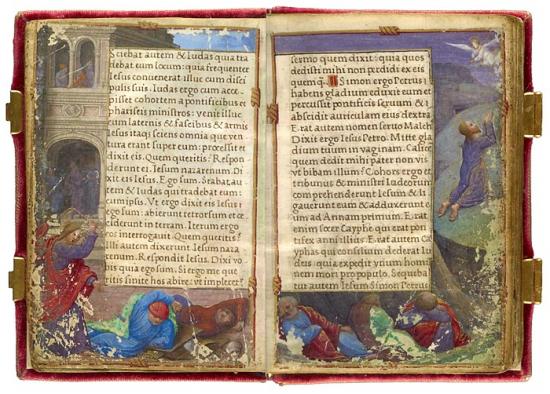 Sciebat autem & Iudas quia tra
debat eum locum: quia frequenter
Iesus convenerat illuc cum disci
pulis suis. Iudas ergo cum acce
pisset cohortem a pontificibus et
phariseis ministros: venit illuc
cum laternis & facibus & armis
Iesus itaq; sciens omnia que ven
tura erant super eum: processit et
Dixit eis. Quem queritis? Respon
derunt ei. Iesum nazarenum. Di
cit eis Iesus. Ego sum. Stabat au
tem & Iudas qui tradebat eum:
cum ipsis. Vt ergo dixit eis Iesus
ego sum: abierunt retrorsum et ce
ciderunt in terram. Iterum ergo
eos interrogaut. Quem queritis?
Illi autem dixerunt Iesum naza
renum. Respondit Iesus. Dixi vo
bis quia ego sum. Si ergo me que
ritis sinite hos abire. vt impleret
sermo quem dixit: quia quos
dedisti mihi non perdidi ex eis
quemq. Simon ergo Petrus
habens gladium eduxit eum et
percussit pontificis seruum & 
abscidit auriculam eius dextra
Erat autem nomen seruo Malch
Dixit ergo Iesus Petro. Mitte gla
dium tuum in vaginam. Calice
quem dedit mihi pater non vi
vt bibam illum? Cohors ergo et
tribunus & ministri Iudeorum
comprehenderunt Iesum & li
gauerunt eum & adduxerunt e
um ad Annam primum. Erat
enim socer Cayphe qui erat pon
tifex anni illius. Erat autem Ca
yphas qui consilium dederat Iu
deis: quia expedit vnum homi
nem mori pro populo. Sequeba
tur autem Iesum Simon Petrus